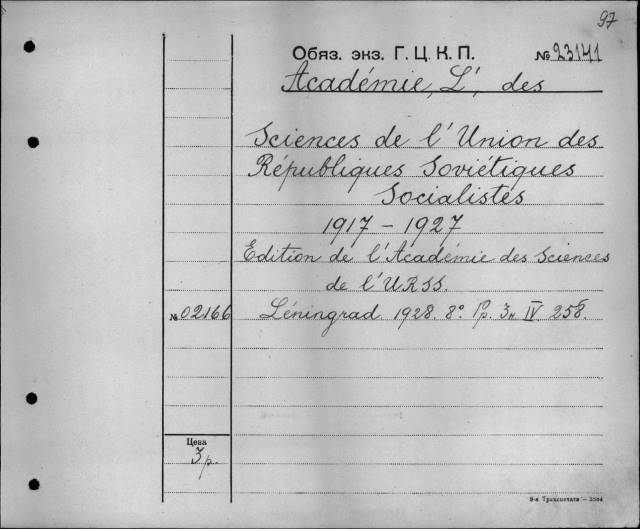 97
Обяз. экз. Г. Ц. К. П. № 23141
Académie, L', des
Sciences de l'Union des
Républiques Soviétiques
Socialistes
1917 - 1927
Edition de l'Académie des Sciences
de l'URSS.
№ 02166 Léningrad. 1928. 8° IV. 258.
Цена
3 р.